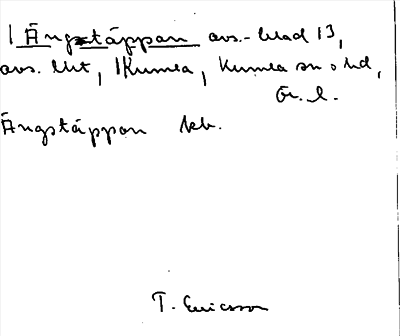 Ängstäppan avs.- blad 13,
avs. till, Kumla, Kumla sn o hd,
Ör. l.
Ängstäppan kb.
T. Ericsson